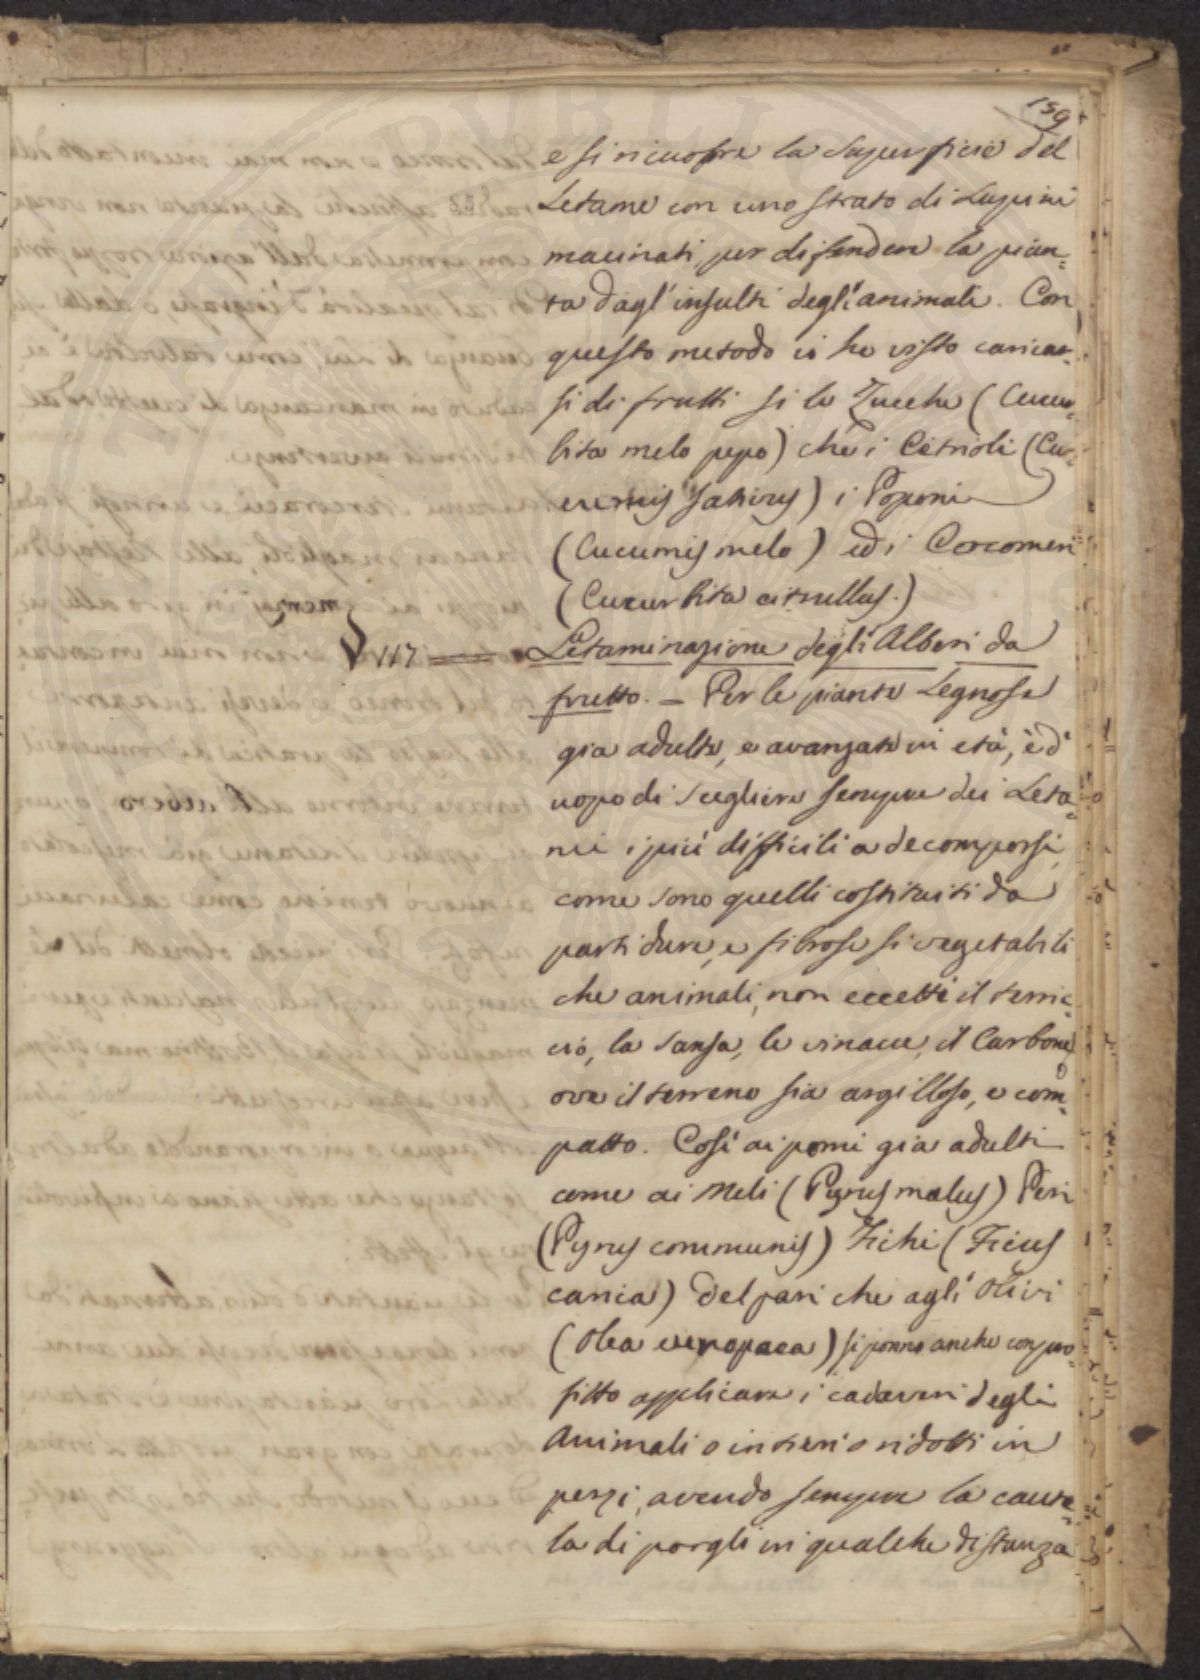 159
e si ricuopre la superficie del
Letame con uno strato di Lupini
macinati, per difendere la pian=
ta dagl'insulti degli animali. Con
questo metodo io ho visto caricar=
si di frutti si le Zucche (Cucur=
bita melo pepo) che i Citrioli (Cu=
cumis sativus) i Poponi
(Cucumis melo) ed i Cocomeri
(Cucurbita citrullus.)
§ 117 == Letaminazione degli Alberi da
frutto. = Per le piante Legnose
gia adulte, e avanzate in età, è d'
uopo di scegliere sempre dei Leta=
mi i piú difficili a decomporsi,
come sono quelli costituiti da
parti dure, e fibrose si vegetabili
che animali, non eccetti il terric=
cio, la sansa, le vinacce, il Carbone,
ove il terreno sia argilloso, e com=
patto. Cosí ai pomi gia adulti
come ai Meli (Pyrus malus) Peri
(Pyrus communis) Fichi (Ficus
carica) del pari che agli Olivi
(Olea europaea) si ponno anche con pro=
fitto applicare i cadaveri degli
Animali o intieri o ridotti in
pezzi, avendo sempre la caute=
la di porgli in qualche distanza